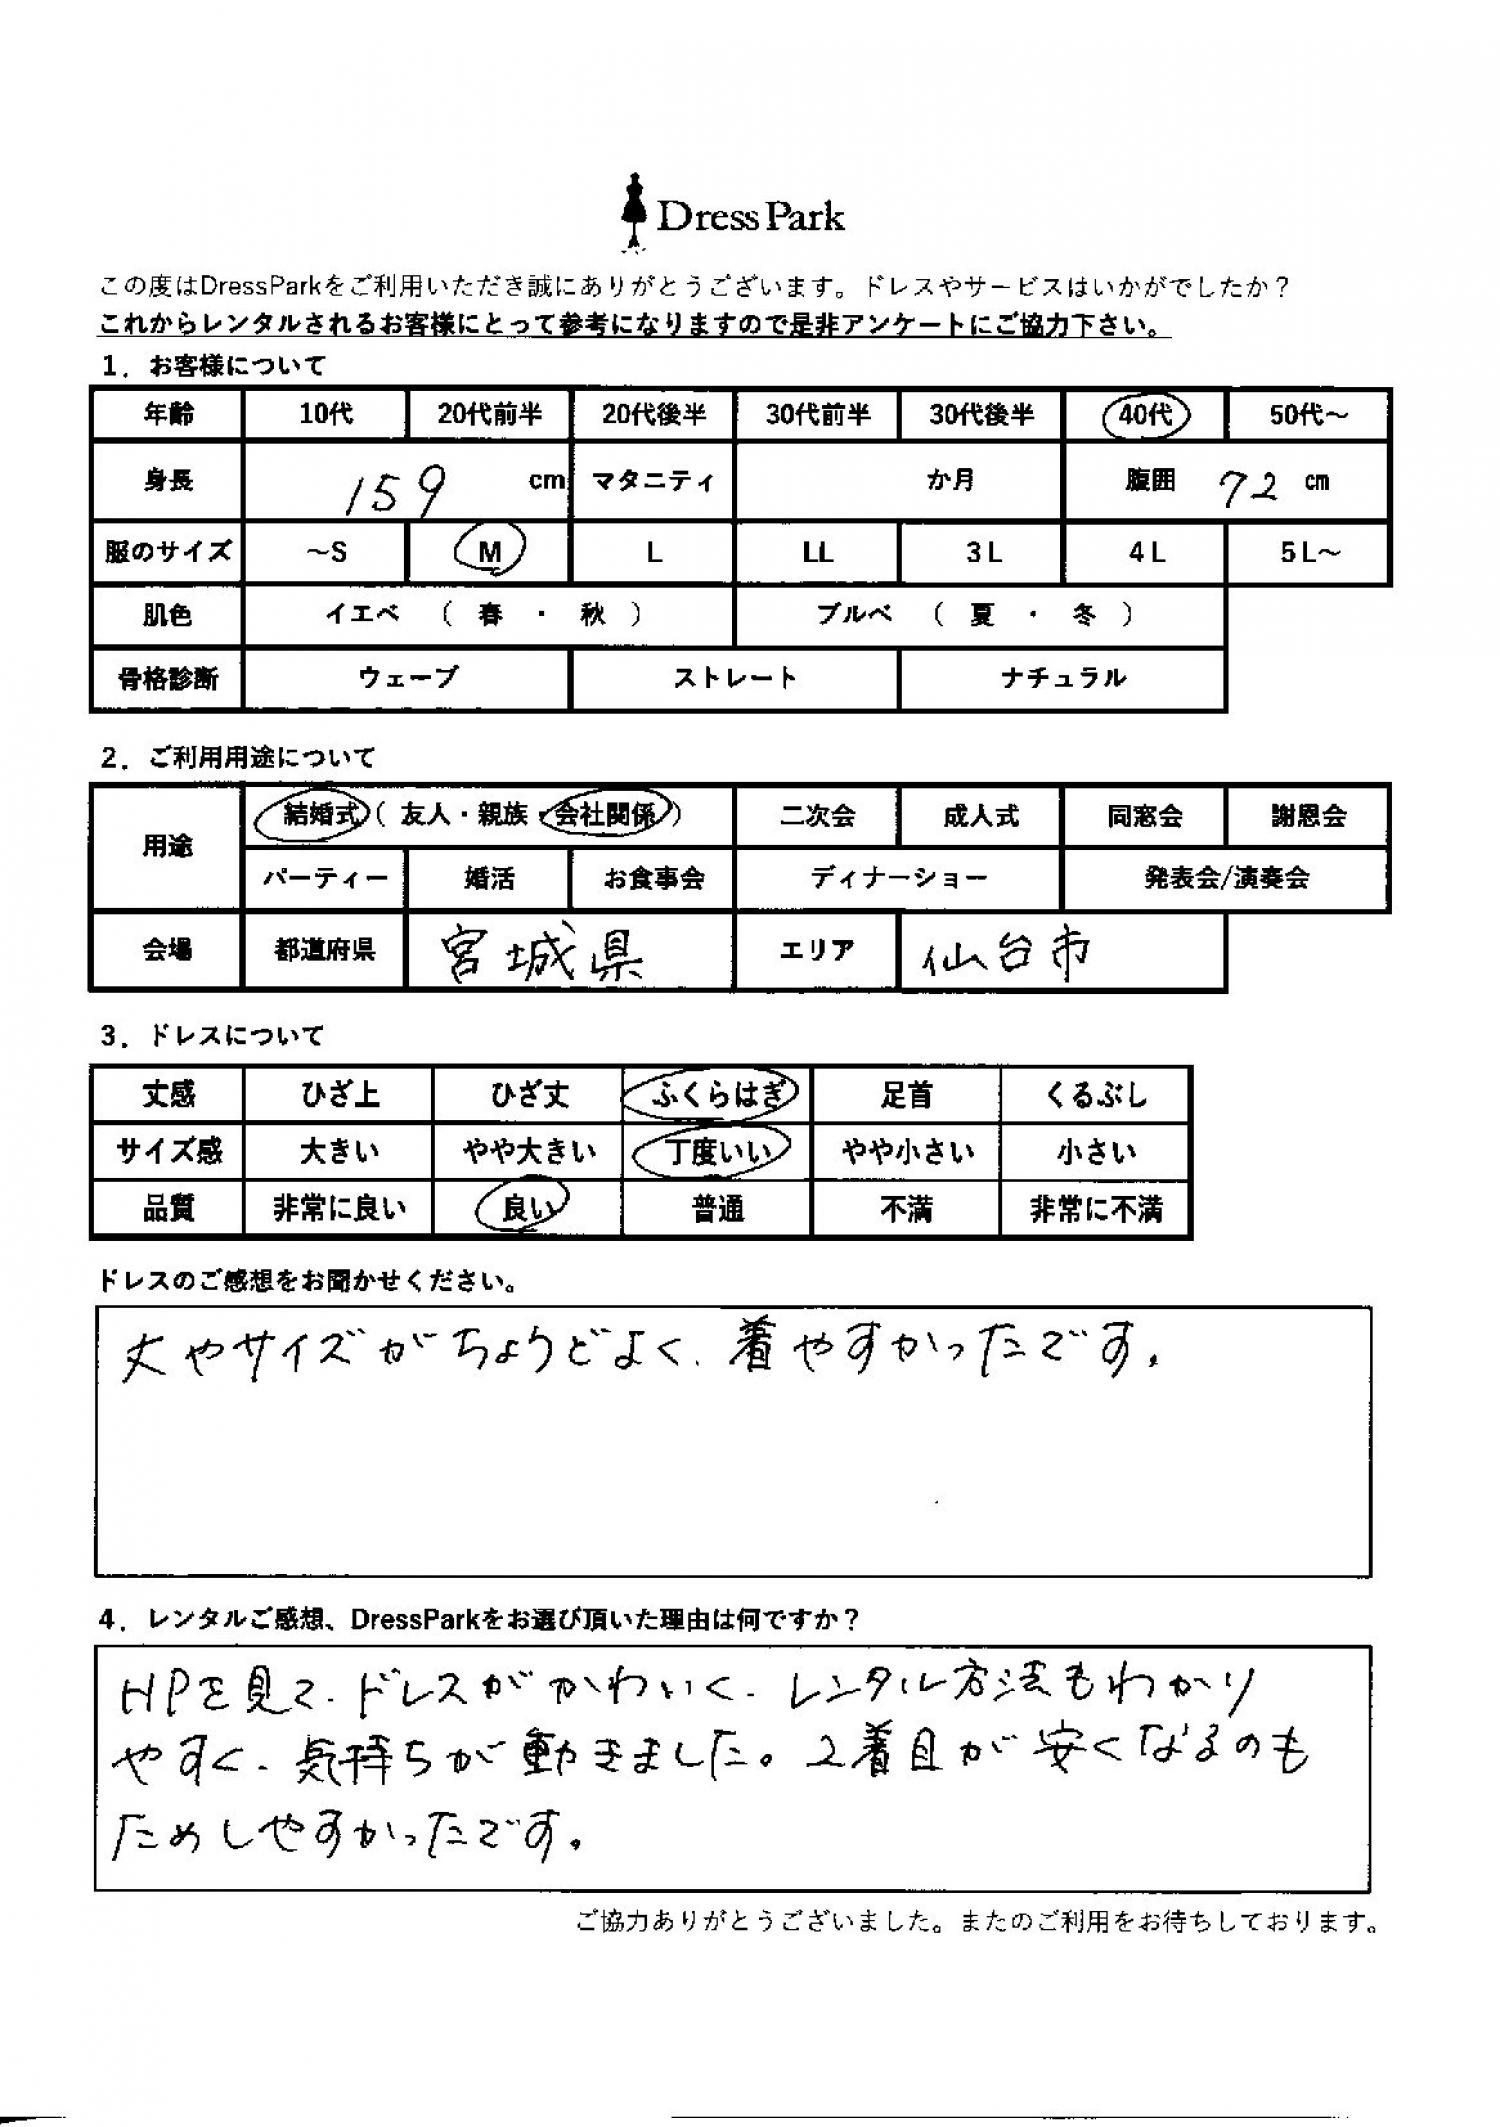 Dress Park
この度はDressParkをご利用いただき誠にありがとうございます。ドレスやサービスはいかがでしたか？
これからレンタルされるお客様にとって参考になりますので是非アンケートにご協力下さい。
1．お客様について
年齢 10代 20代前半 20代後半 30代前半 30代後半 40代 50代～
身長 159 cm マタニティ か月 腹囲 72 cm
服のサイズ ～S M L LL 3L 4L 5L～
肌色 イエベ （ 春 ・ 秋 ） ブルべ （ 夏 ・ 冬 ）
骨格診断 ウェーブ ストレート ナチュラル
2．ご利用用途について
用途 結婚式（ 友人・親族・会社関係） 二次会 成人式 同窓会 謝恩会
パーティー 婚活 お食事会 ディナーショー 発表会/演奏会
会場 都道府県 宮城県 エリア 仙台市
3．ドレスについて
丈感 ひざ上 ひざ丈 ふくらはぎ 足首 くるぶし
サイズ感 大きい やや大きい 丁度いい やや小さい 小さい
品質 非常に良い 良い 普通 不満 非常に不満
ドレスのご感想をお聞かせください。
丈やサイズがちょうどよく、着やすかったです。
4．レンタルご感想、DressParkをお選び頂いた理由は何ですか？
HPを見て、ドレスがかわいく、レンタル方法もわかり
やすく、気持ちが動きました。2着目が安くなるのも
ためしやすかったです。
ご協力ありがとうございました。またのご利用をお待ちしております。